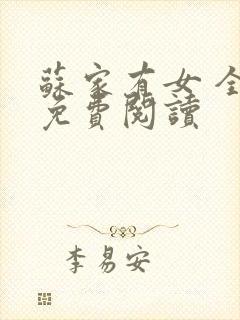 蘇家有女 全
免費閱讀
李易安